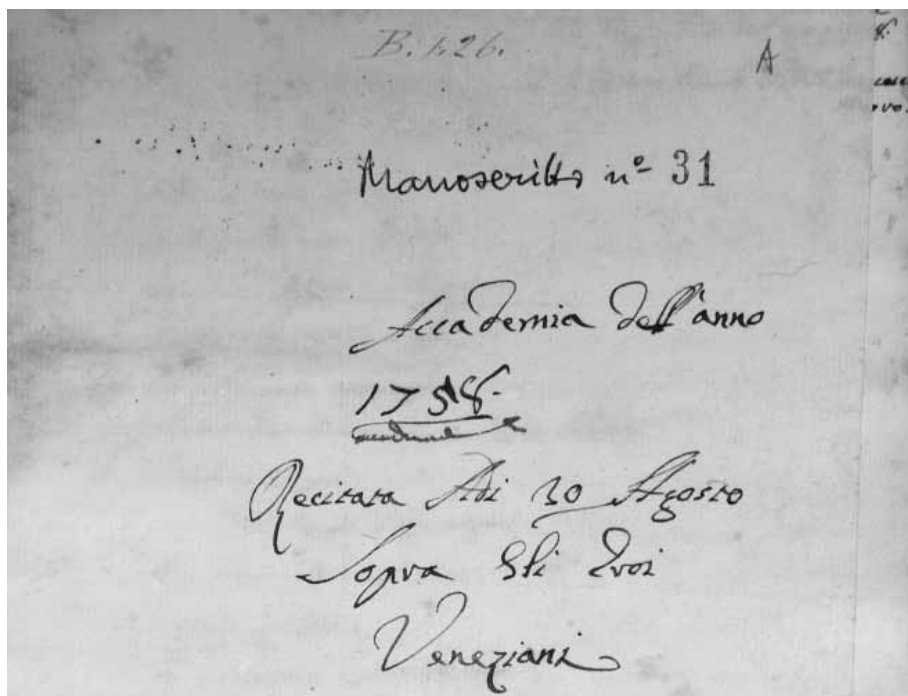 B. 1. 26.
A
Manoscritto nº 31
Accademia dell'anno
1758.
Recitata Adi 30 Agosto
Sopra Gli Eroi
Veneziani